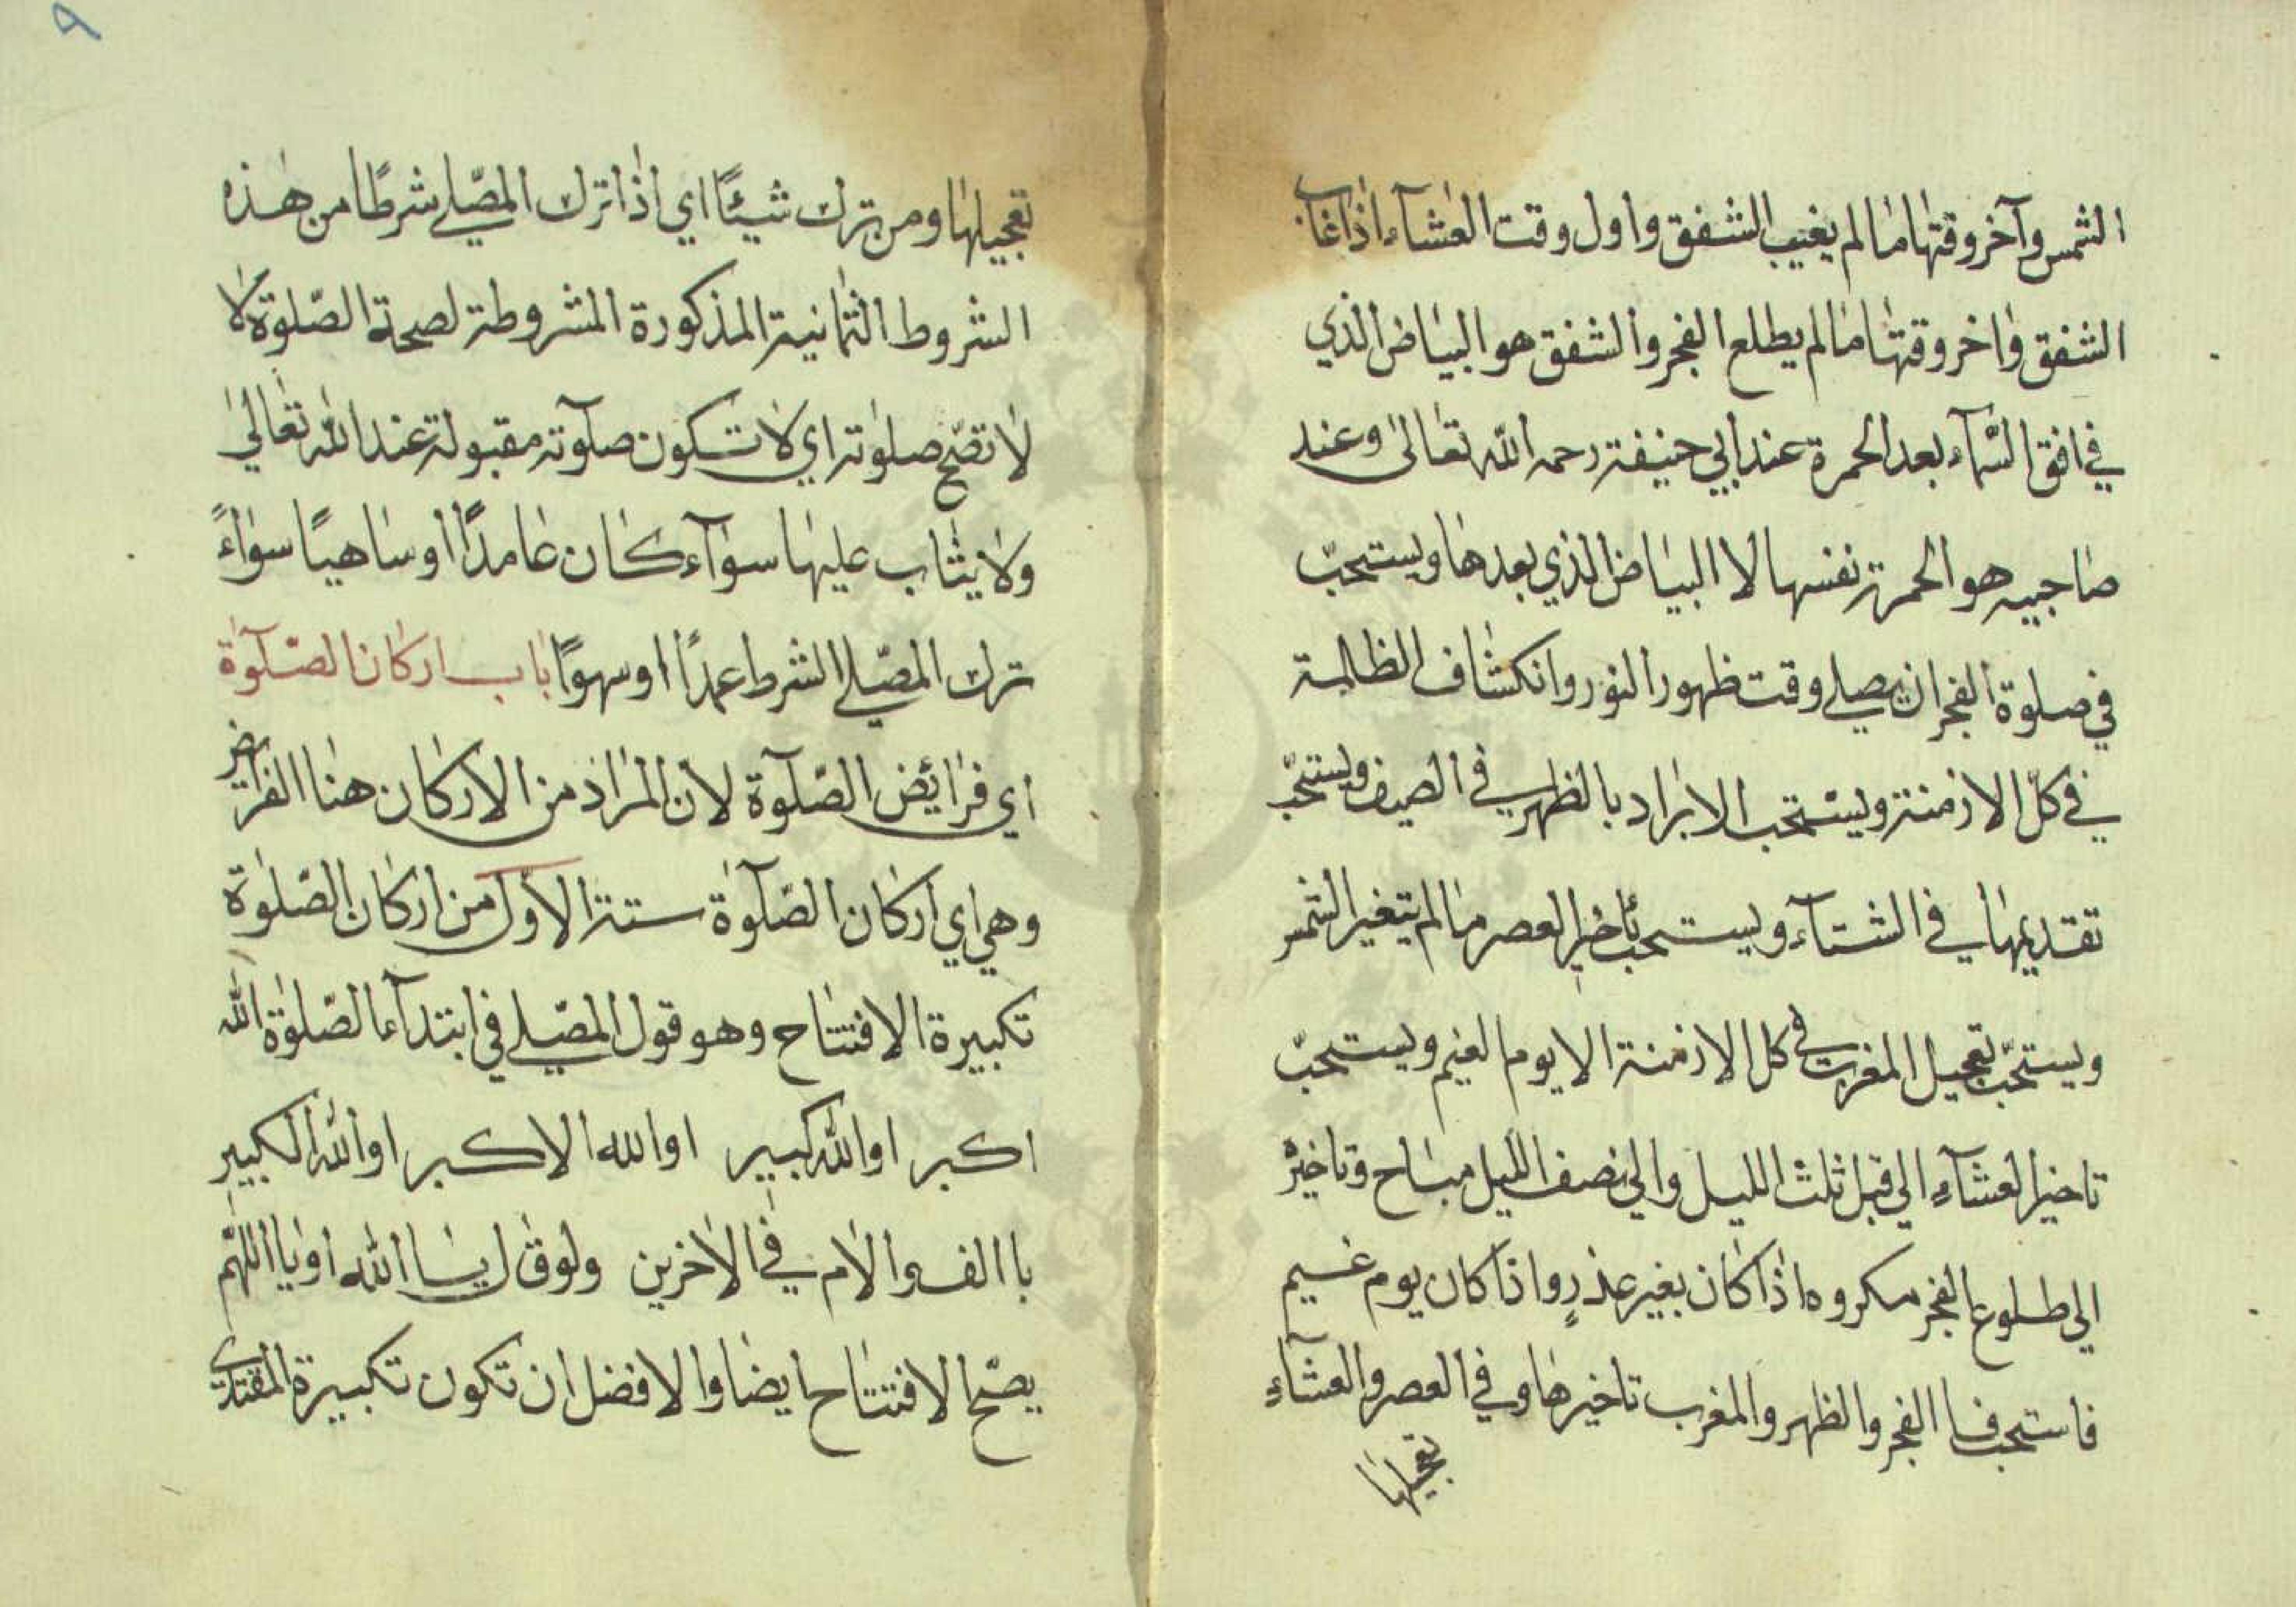 الشمس وآخر وقتها ما لم يغيب الشفق واول وقت العشآء اذا غاب
الشفق واخر وقتها ما لم يطلع الفجر والشفق هو البياض الذي
في افق السمآء بعد الحمرة عند ابي حنيفة رحمه الله تعالى وعند
صاحبيه هو الحمرة نفسها لا البياض الذي بعدها ويستحبّ
في صلوة الفجر ان يصلي وقت ظهور النور وانكشاف الظالمة
في كلّ الازمنة ويستحب الابراد بالظهر في الصيف ويستحبّ
تقديمها في الشتآء ويستحب تأخير العصر ما لم يتغير الشمس
ويستحبّ تعجيل المغرب في كل الازمنة الا يوم الغيم ويستحبّ
تاخير العشآءِ الي قبل ثلث الليل والي نصف الليل مباح وتاخيرْ
الى طلوع الفجر مكروه اذا كان بغير عذرٍ واذا كان يوم غيم
فاستحب فا الفجر والظهر والمغرب تاخيرها وفي العصر والعشآءِ
تعجيلها
٩
تعجيلها ومن ترك شيئًا اي اذا ترك المصّلي شرطًا من هذه
الشروط الثمانية المذكورة المشروطة لصحة الصّلوة لا
لا تصّح صلوته اي لا تكون صلوته مقبولة عند الله تعالىٰ
ولا يثاب عليها سوآء كان عامدًا او ساهيًا سواءً
ترك المصّلي الشرط عمدًا او سهوًا باب اركان الصّلوة
اي فرايئض الصّلوة لان المراد من الاركان هنا الفرايض
وهي اي اركان الصّلوة ستة الاول من اركان الصّلوة
تكبيرة الافتتاح وهو قول المصّلي في ابتدآء الصّلوة الله
اكبر او الله كبير او الله الاكبر او الله الكبير
با الف والام في الاخرين ولو قال يا الله او يا اللهّم
يصّح الافتتاح ايضا والافضل ان تكون تكبيرة المقتدى